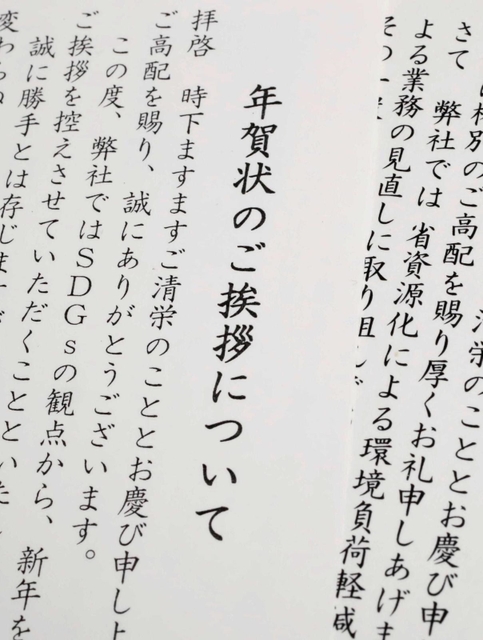 清栄のこととお慶び申
格別のご高配を賜り厚くお礼申しあげま
さて　弊社では　省資源化による環境負荷軽減
よる業務の見直しに取り組んで
その一
年賀状のご挨拶について
拝啓　時下ますますご清栄のこととお慶び申し上
ご高配を賜り、誠にありがとうございます。
この度、弊社ではSDGsの観点から、新年を
ご挨拶を控えさせていただくことといたし
誠に勝手とは存じます
変わらぬ